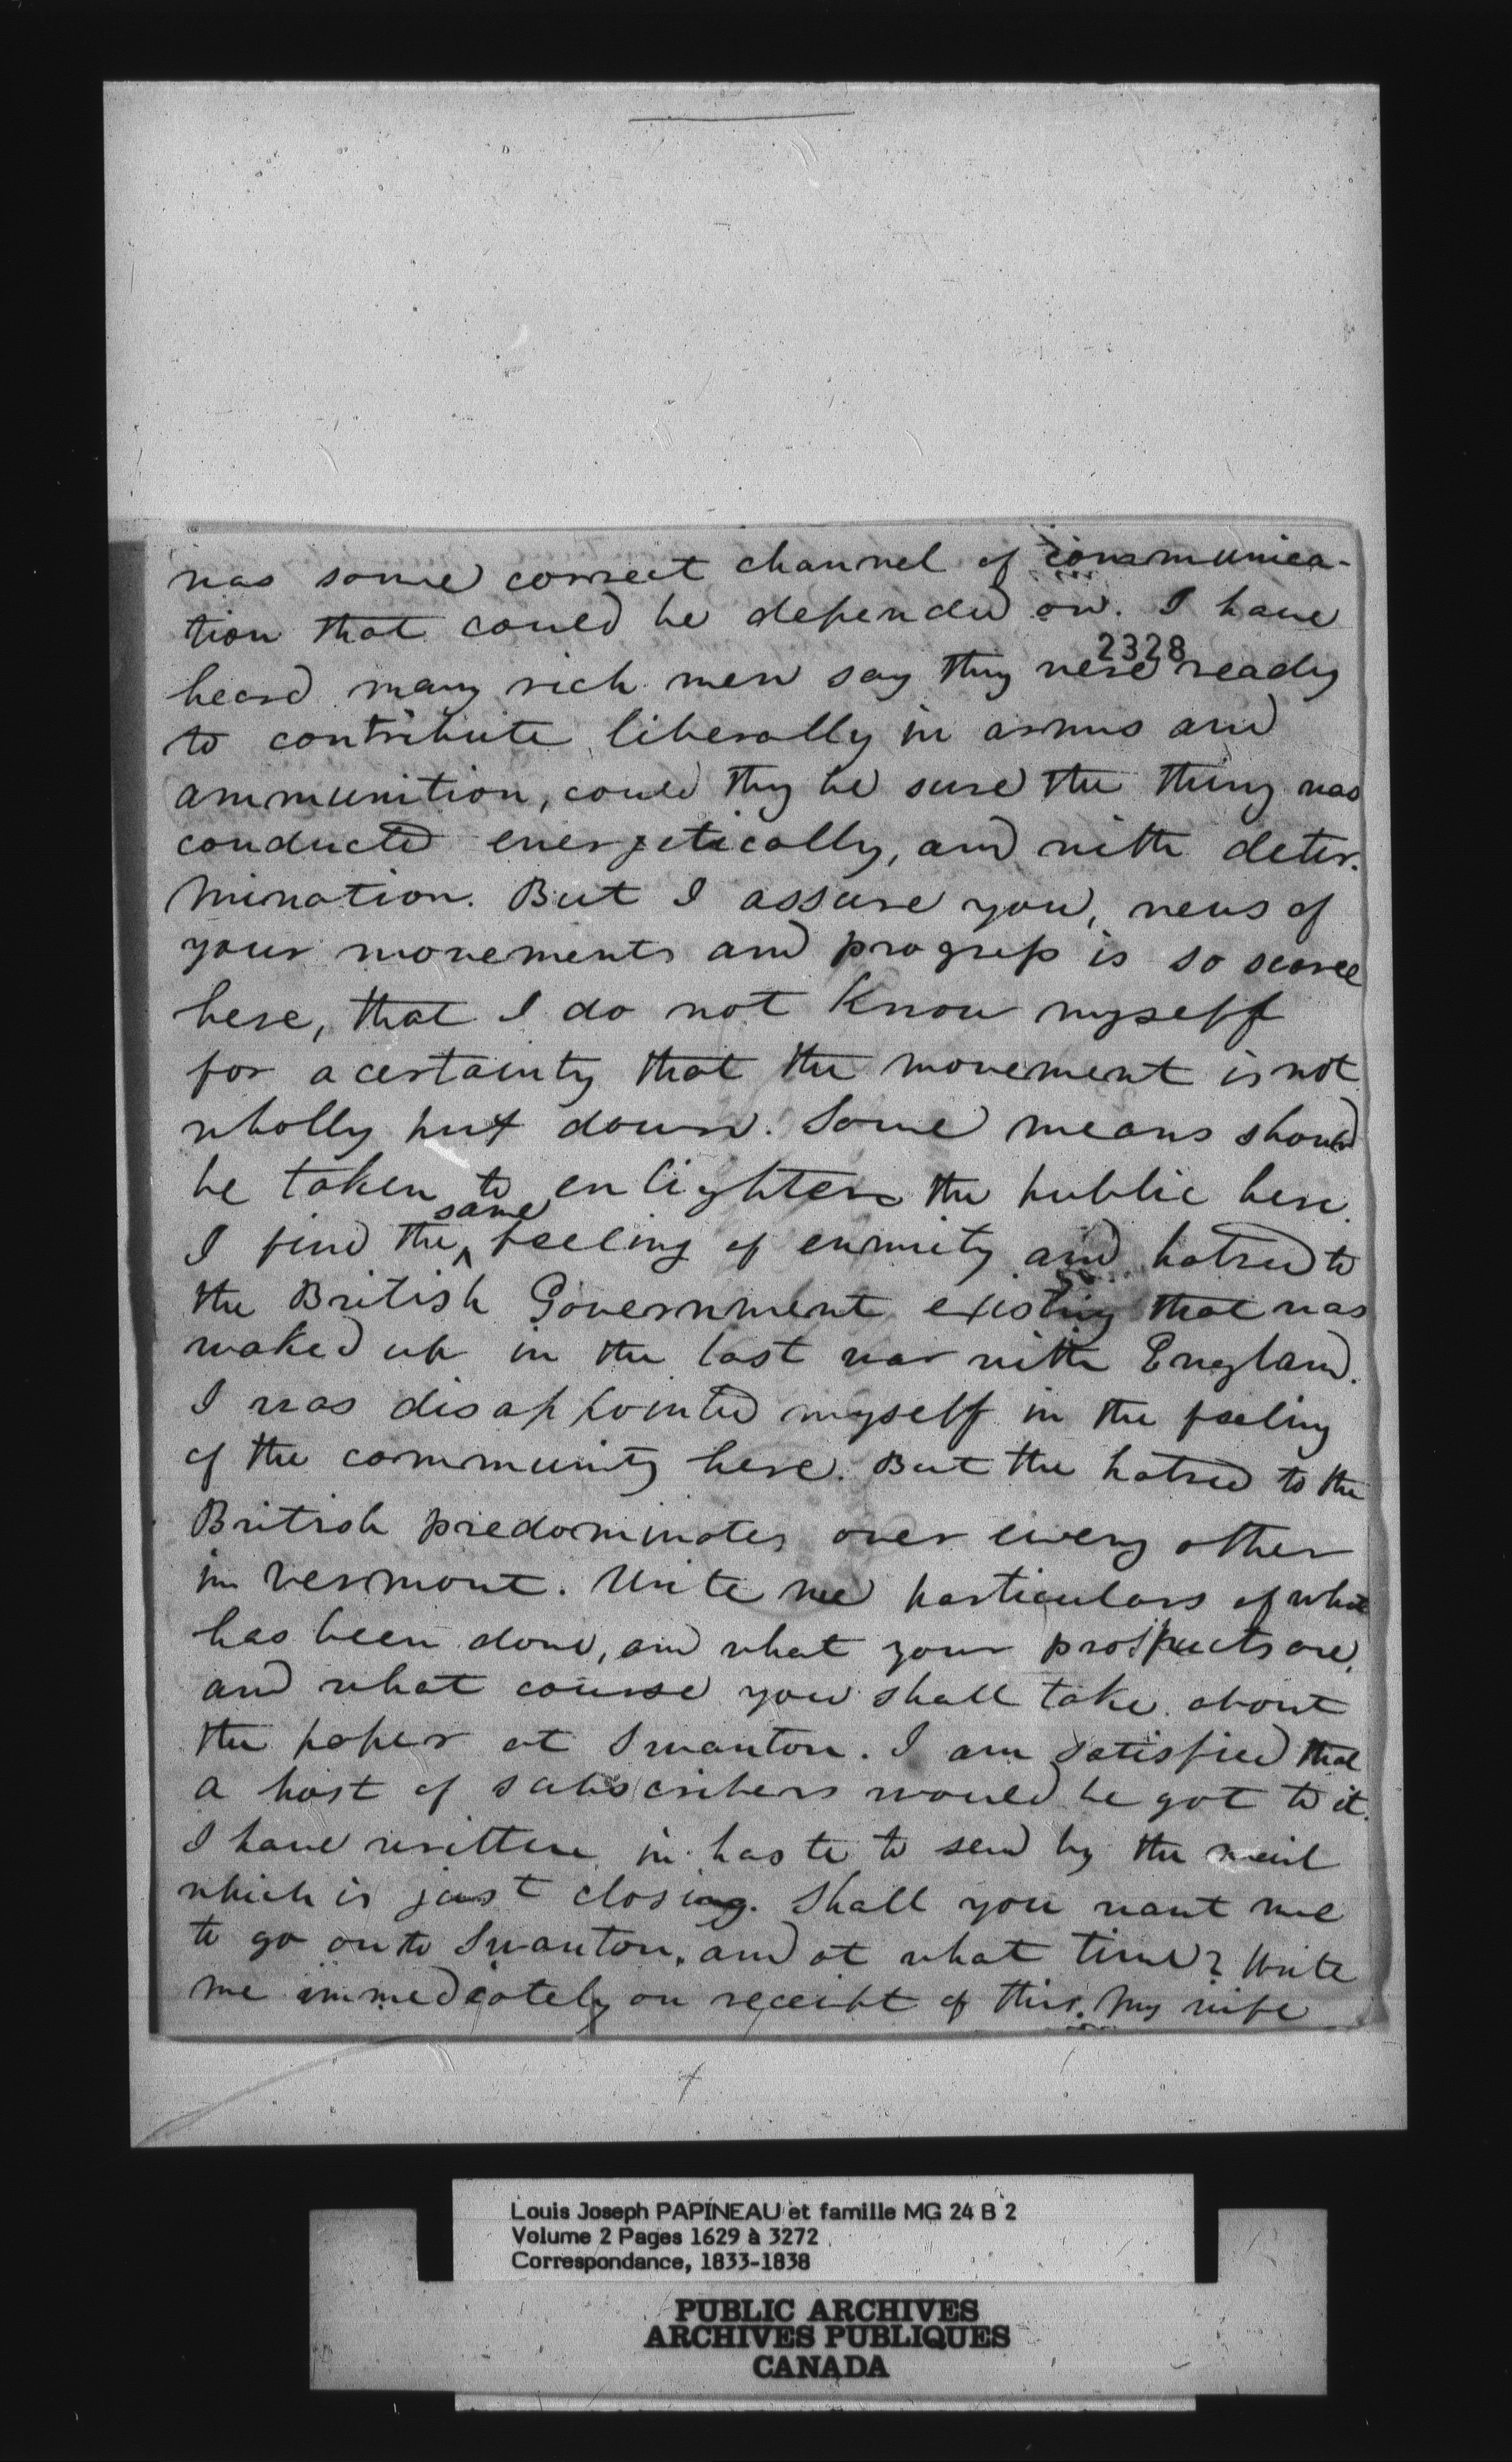 was some correct channel of communica-
tion that could be depended on. I have
2328
heard many rich men say they were ready
to contribute liberally in arms and
ammunition, could they be sure the thing was
conducted energetically, and with deter-
mination. But I assure you, news of
your movements and progress is so scarce
here, that I do not know myself
for a certainty that the movement is not
wholly put down. Some means should
be taken to enlighten the public here.
same
I find the ^ feeling of enmity and hatred to
the British Government existing that was
waked up in the last war with England.
I was disappointed myself in the feeling
of the community here. But the hatred to the
British predominates over every other
in Vermont. Write me particulars of what
has been done, and what your prospects are,
and what course you shall take about
the paper at Swanton. I am satisfied that
a host of subscribers would be got to it.
I have written in haste to send by the mail
which is just closing. Shall you want me
to go on to Swanton, and at what time? Write
me immediately on receipt of this. My wife
Louis Joseph PAPINEAU et famille MG 24 B 2
Volume 2 Pages 1629 à 3272
Correspondance, 1833-1838
PUBLIC ARCHIVES
ARCHIVES PUBLIQUES
CANADA